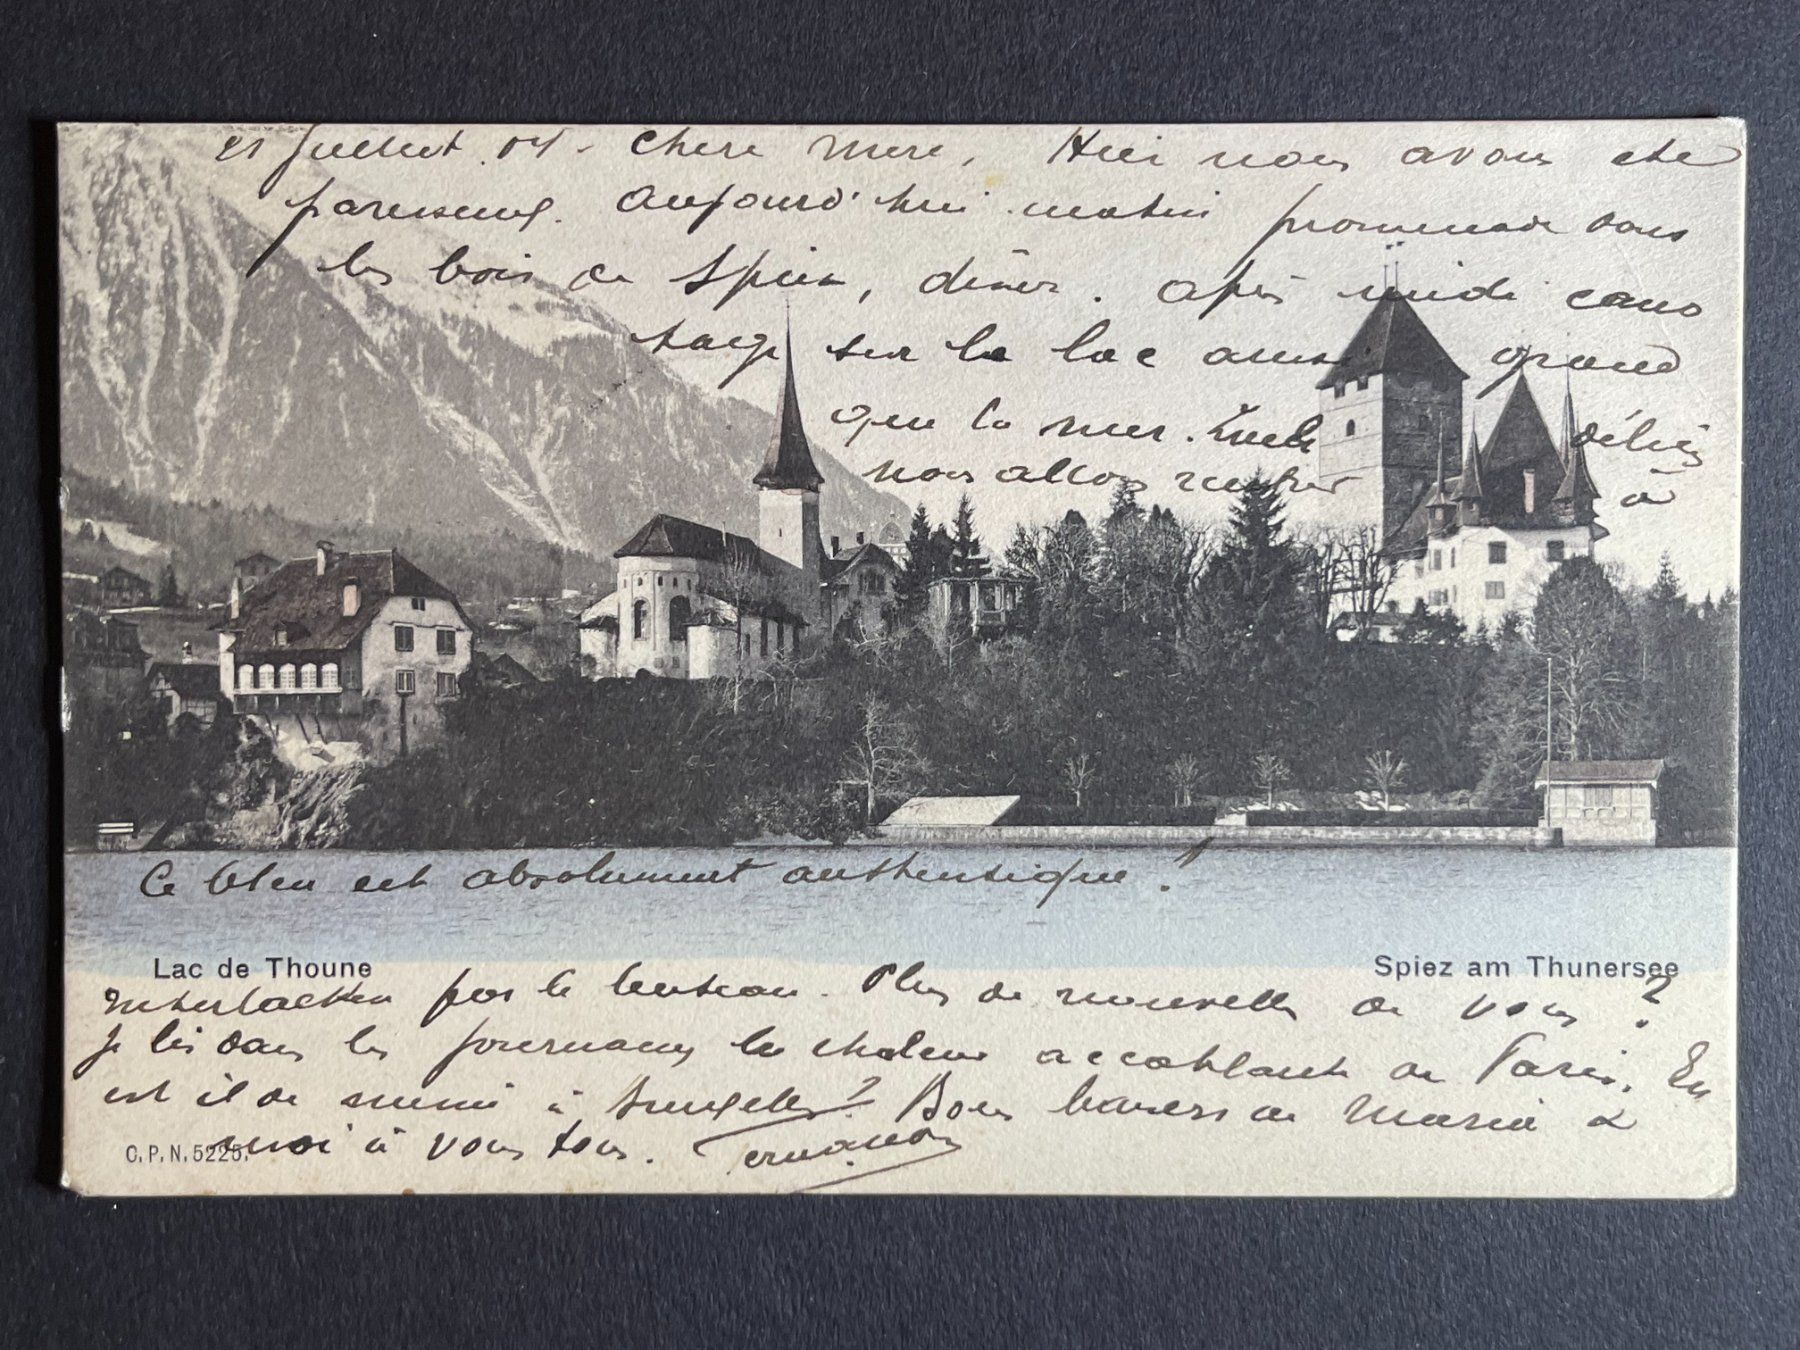 21 Juillet 04 - Chere Mere, Hier nous avons ete
paresseux. Aujourd'hui matin promenade dans
les bois de Spiez, dîner. Après midi cano
tage sur le lac aussi grand
que la mer. délices
nous allons rentrer à
Ce bleu est absolument authentique !
Lac de Thoune
Spiez am Thunersee
Interlacken par le bateau. Plus de nouvelles de vous ?
Je lis dans les journaux la chaleur accablante de Paris. En
est il de meme à Bruxelles ? Bons baisers de Maria &
moi à vous tous.
C.P.N. 5225.